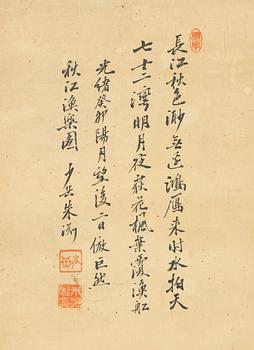 長江秋色渺無邊鴻雁来時水拍天
七十二灣明月夜荻花楓葉覆漁船
光緒癸卯陽月望後二日倣巨然
秋江漁樂圖 少岳朱渊